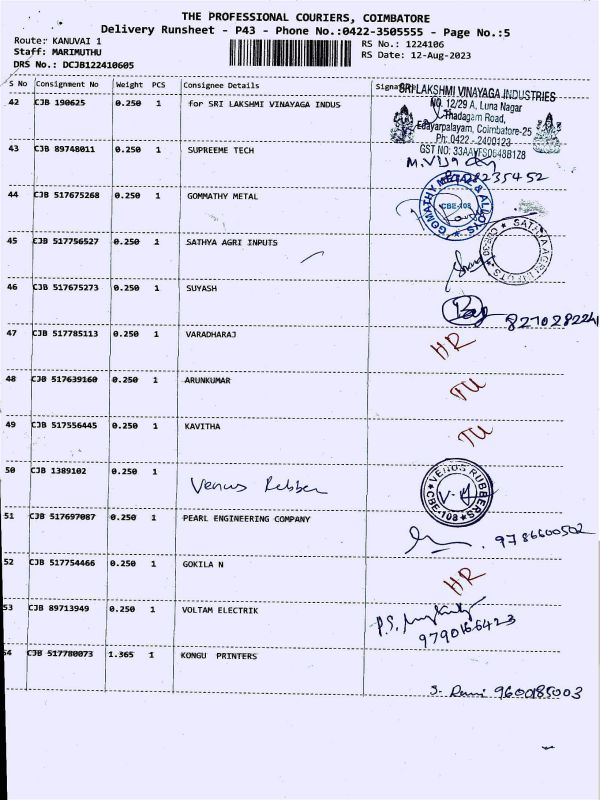 THE PROFESSIONAL COURIERS, COIMBATORE
Delivery Runsheet - P43 - Phone No.:0422-3505555 - Page No.:5
Route: KANUVAI 1
Staff: MARIMUTHU
DRS No.: DCJB122410605
RS No.: 1224106
RS Date: 12-Aug-2023
S No Consignment No Weight PCS Consignee Details Signature
42 CJB 190625 0.250 1 for SRI LAKSHMI VINAYAGA INDUS
SRI LAKSHMI VINAYAGA INDUSTRIES
NO. 12/29 A, Luna Nagar
Thadagam Road,
Edayarpalayam, Coimbatore-25
Ph: 0422 - 2400123
43 CJB 89748011 0.250 1 SUPREEME TECH
44 CJB 517675268 0.250 1 GOMMATHY METAL
GOMATHY METAL & ALLOYS
CBE-108
45 CJB 517756527 0.250 1 SATHYA AGRI INPUTS
SATHYA AGRI INPUTS
46 CJB 517675273 0.250 1 SUYASH
47 CJB 517785113 0.250 1 VARADHARAJ
HR
48 CJB 517639160 0.250 1 ARUNKUMAR
TU
49 CJB 517556445 0.250 1 KAVITHA
TU
50 CJB 1389102 0.250 1
Venus Rubber
VENUS RUBBERS
CBE-108
51 CJB 517697087 0.250 1 PEARL ENGINEERING COMPANY
9786600502
52 CJB 517754466 0.250 1 GOKILA N
HR
53 CJB 89713949 0.250 1 VOLTAM ELECTRIK
54 CJB 517780073 1.365 1 KONGU PRINTERS
9600185003